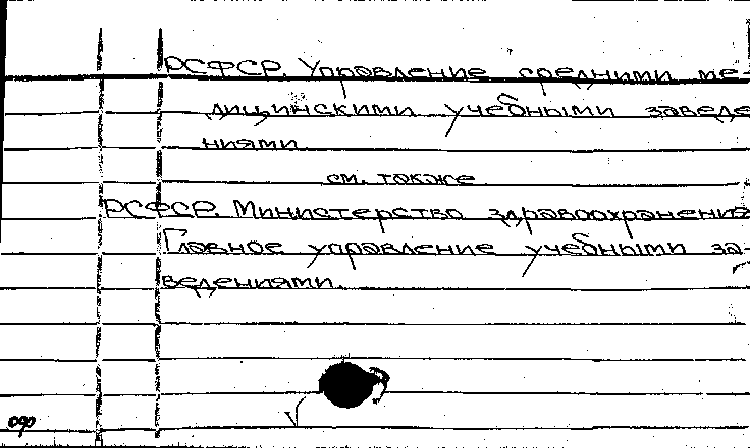 РСФСР. Управление средними ме-
дицинскими учебными заведе
ниями
см. также
РСФСР. Министерство здравоохранения.
Главное управление учебными за-
ведениями.